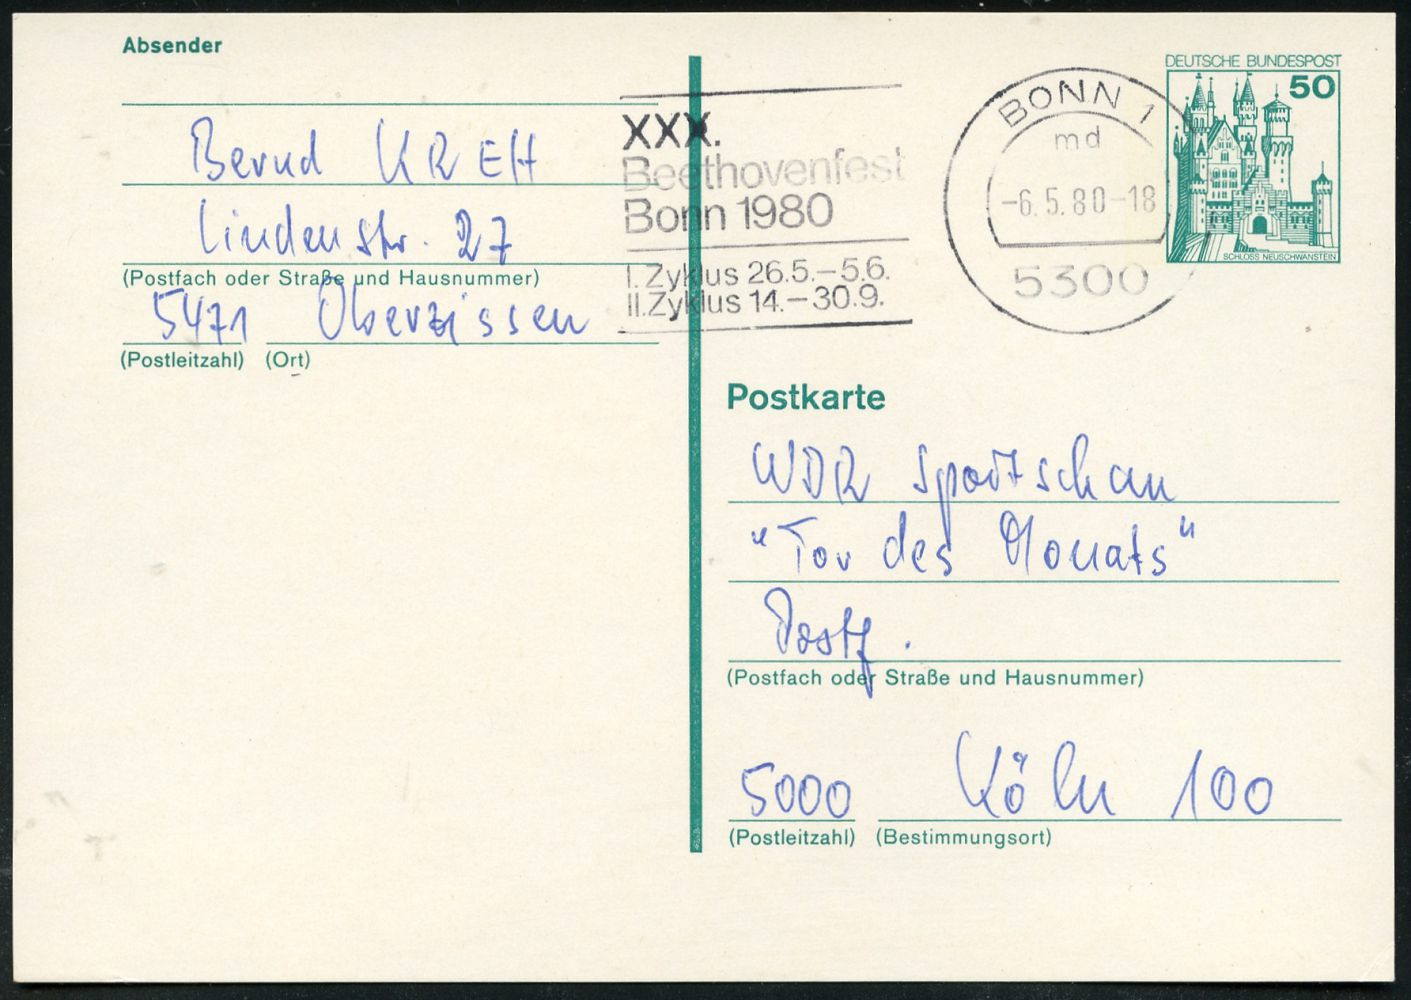 Absender
Bernd KREH
Lindenstr. 27
(Postfach oder Straße und Hausnummer)
5471 Oberzissen
(Postleitzahl) (Ort)
XXX.
Beethovenfest
Bonn 1980
I. Zyklus 26.5.–5.6.
II. Zyklus 14.–30.9.
BONN 1
md
-6.5.80-18
5300
DEUTSCHE BUNDESPOST
50
SCHLOSS NEUSCHWANSTEIN
Postkarte
WDR Sportschau
"Tor des Monats"
Postf.
(Postfach oder Straße und Hausnummer)
5000 Köln 100
(Postleitzahl) (Bestimmungsort)